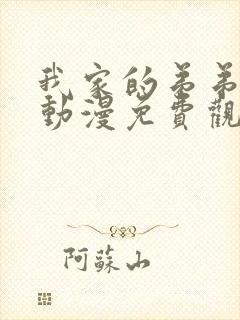 我家的弟弟
動漫免費觀
阿蘇山